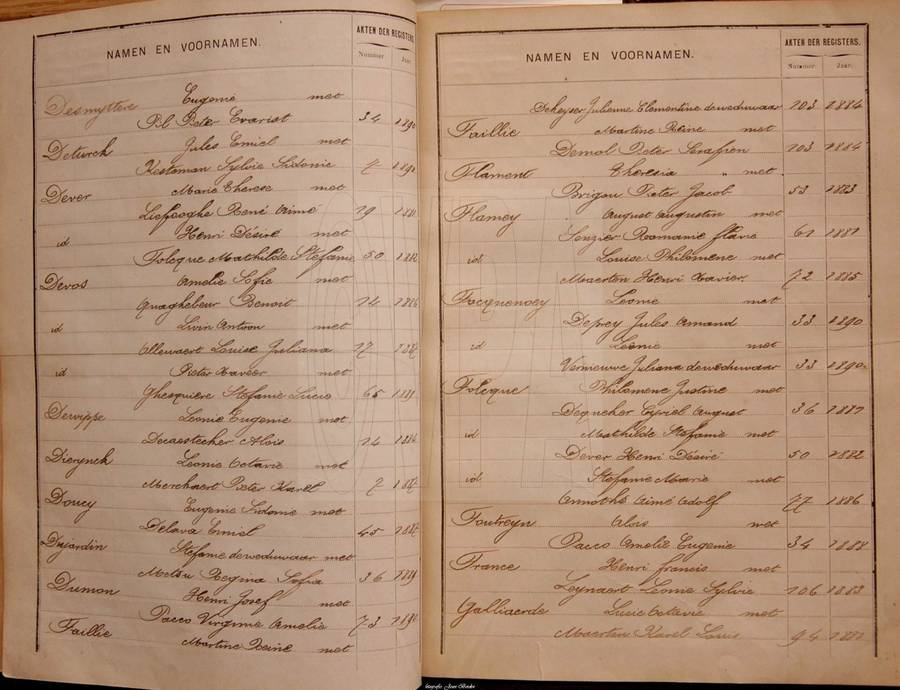 NAMEN EN VOORNAMEN.
AKTEN DER REGISTERS.
Nummer Jaar
Desmyttere Eugenie met
Bl Pieter Evarist 34 1890
Deturck Jules Emiel met
Kesteman Sylvie Sidonie 7
Dever Marie Therese met
Liefooghe René Aimé 19
id Henri Désiré met
Folcque Mathilde Stefanie 50 1882
Devos Amelie Sofie met
Quaghebeur Benoit 14 1886
id Livin Antoon met
Ollewaert Louise Juliana 17
id Pieter Xaveer met
Ghesquiere Stefanie Lucie 65
Dewippe Leonie Eugenie met
Decaestecker Alois 14 1886
Dierynck Leonie Octavie met
Merchaert Pieter Karel 7
Doucy Eugenie Sidonie met
Delava Emiel 45
Dujardin Stefanie de weduwaar met
Metsu Regina Sofia 36
Dumon Henri Josef met
Pacco Virginie Amelie 73 1890
Faillie Martine Reine met
NAMEN EN VOORNAMEN.
AKTEN DER REGISTERS.
Nummer Jaar.
Dekeyser Julienne Clementine de weduwaar 103 1884
Faillie Martine Reine met
Demol Pieter Serafien 103 1884
Flament Theresia " met
Brigou Pieter Jacob 53 1883
Flamey August Augustin met
Senzier Romanie Flavie 61 1881
id Louise Philomene met
Maerten Henri Xavier. 72 1885
Focquenoey Leonie met
Deprey Jules Amand 33 1890
id Leonie met
Vermeuwe Juliana de weduwaar 33 1890
Folcque Philomene Justine met
Dequeker Cyriel August 36 1887
id Mathilde Stefanie met
Dever Henri Désiré 50 1882
id Stefanie Marie met
Annothé Aimé Adolf 77 1886
Foutreyn Alois met
Pacco Amelie Eugenie 34 1888
France Henri Francis met
Leynaert Leonie Sylvie 106 1883
Galliaerde Lucie Octavie met
Maerten Karel Louis 94 1882